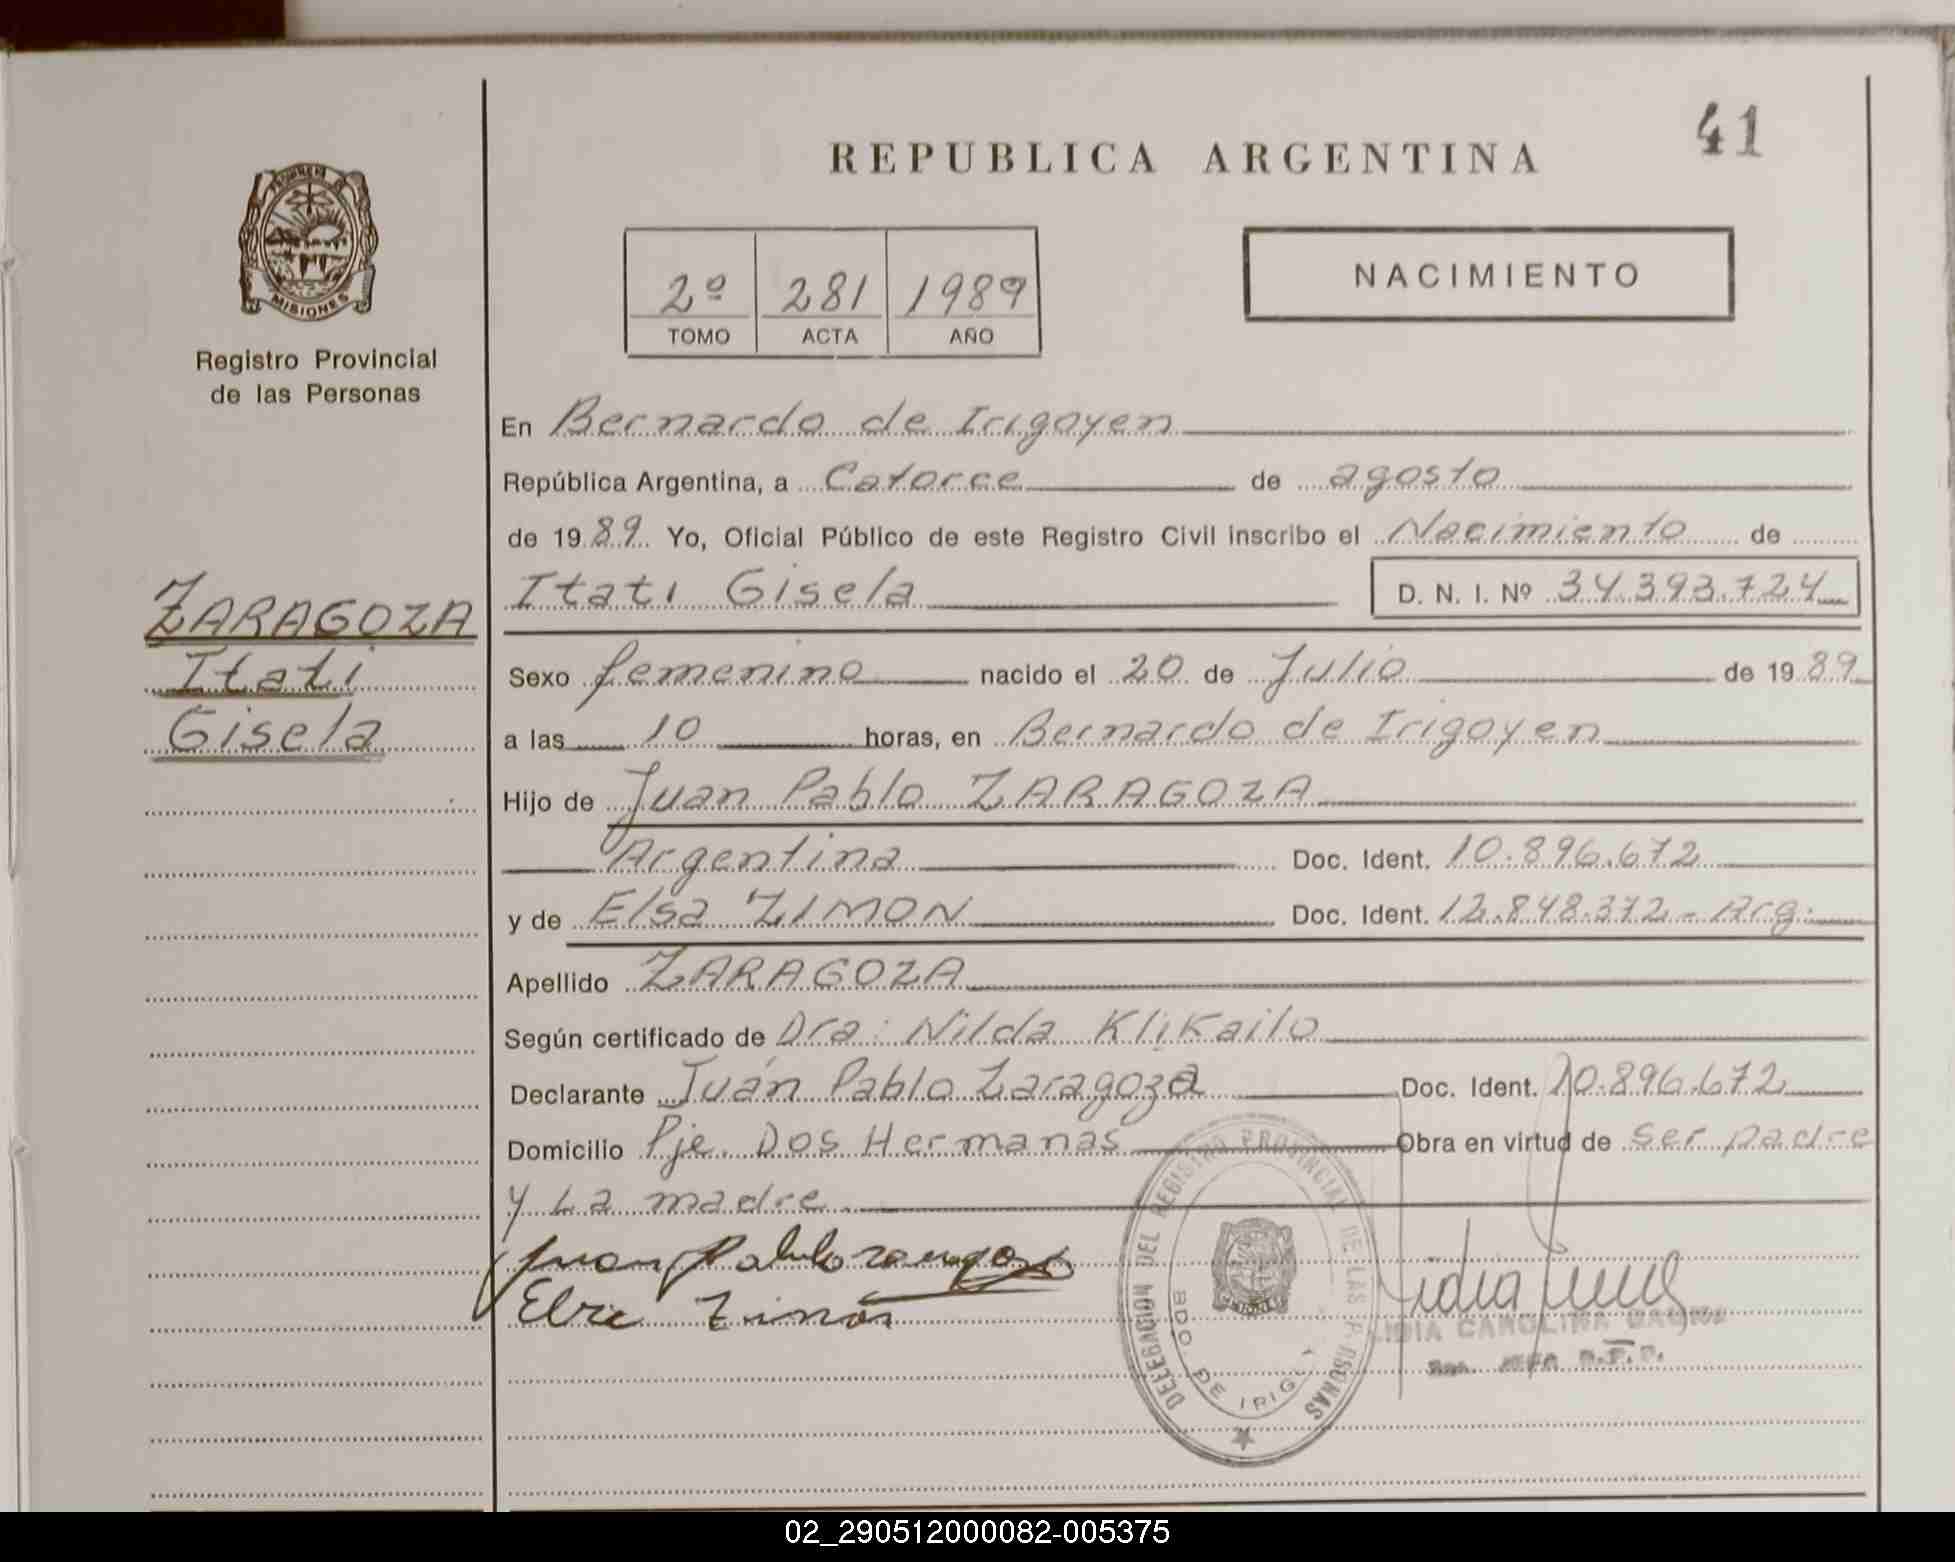 41
REPUBLICA ARGENTINA
PROVINCIA DE
MISIONES
Registro Provincial
de las Personas
2º 281 1989
TOMO ACTA AÑO
NACIMIENTO
En Bernardo de Irigoyen
República Argentina, a Catorce de agosto
de 1989 Yo, Oficial Público de este Registro Civil inscribo el Nacimiento de
Itati Gisela D. N. I. Nº 34.393.724
ZARAGOZA
Itati
Gisela
Sexo femenino nacido el 20 de Julio de 1989
a las 10 horas, en Bernardo de Irigoyen
Hijo de Juan Pablo ZARAGOZA
Argentina Doc. Ident. 10.896.672
y de Elsa ZIMON Doc. Ident. 12.848.372 - Arg.
Apellido ZARAGOZA
Según certificado de Dra: Nilda Klikailo
Declarante Juan Pablo Zaragoza Doc. Ident. 10.896.672
Domicilio Pje. Dos Hermanas Obra en virtud de ser padre
y La madre
Juan Pablo
DELEGACION DEL REGISTRO PROVINCIAL DE LAS PERSONAS
BDO. DE IRIGOY
LIDIA CAROLINA
02_290512000082-005375